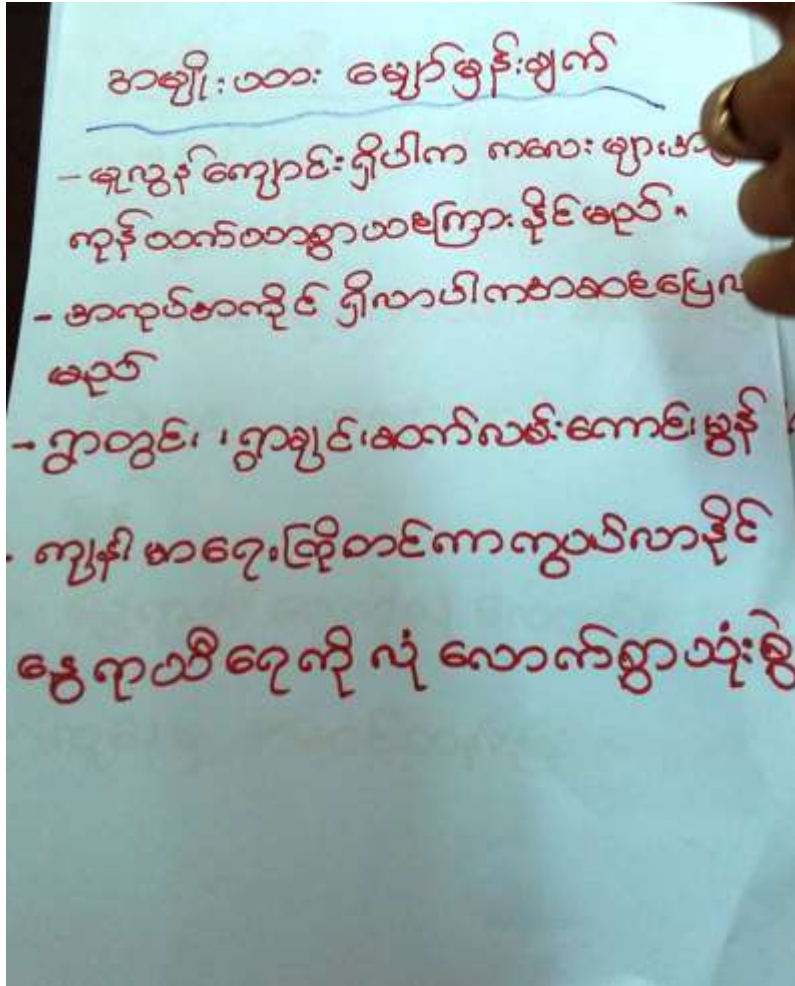 အမျိုးသား မျှော်မှန်းချက်
- မူလွန်ကျောင်းရှိပါက ကလေးများ
ကုန်သက်သာစွာသင်ကြားနိုင်မည်။
- အလုပ်အကိုင် ရှိလာပါကအဆင်ပြေ
မည်
- ရွာတွင်း၊ ရွာချင်းဆက်လမ်းကောင်းမွန်
- ကျန်းမာရေးကြိုတင်ကာကွယ်လာနိုင်
နွေရာသီရေကို လုံလောက်စွာသုံးစွဲ